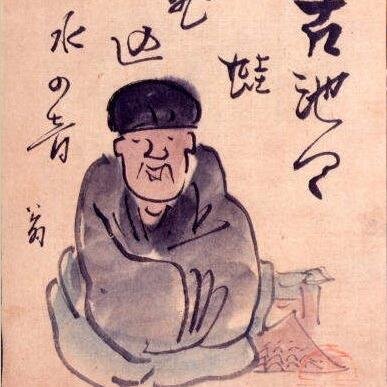 古池や
蛙
込
水の音
翁